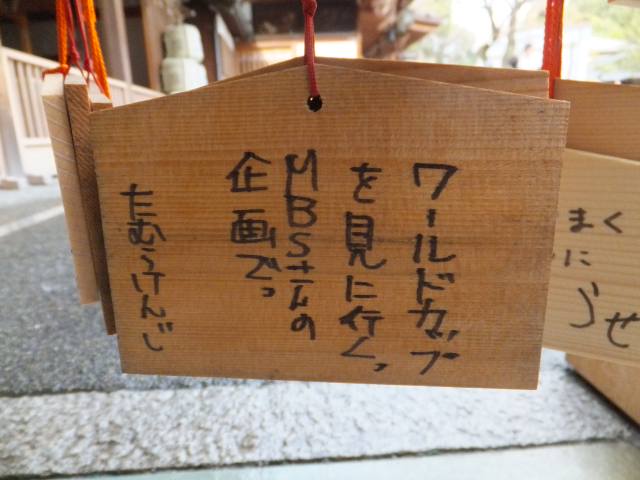 ワールドカップ
を見に行く。
MBSさんの
企画で。
たむらけんじ
まく
に
うせ